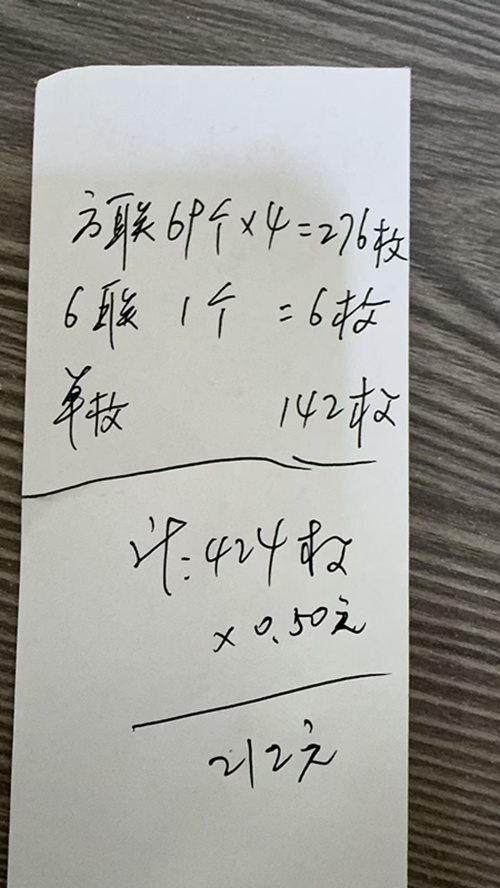 方联69个×4=276枚
6联 1个 =6枚
单枚 142枚
计:424枚
×0.50元
212元